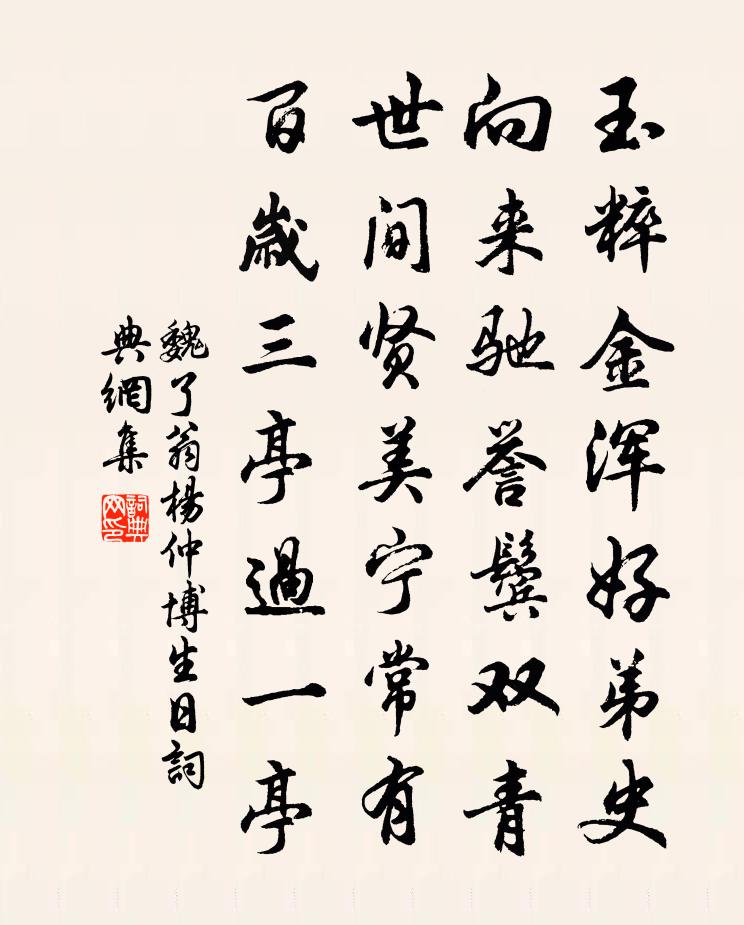 玉粹金浑好弟史
向来驰誉鬓双青
世间贤美宁常有
百岁三亭過一亭
魏了翁楊仲博生日詞
典網集
詞典网印